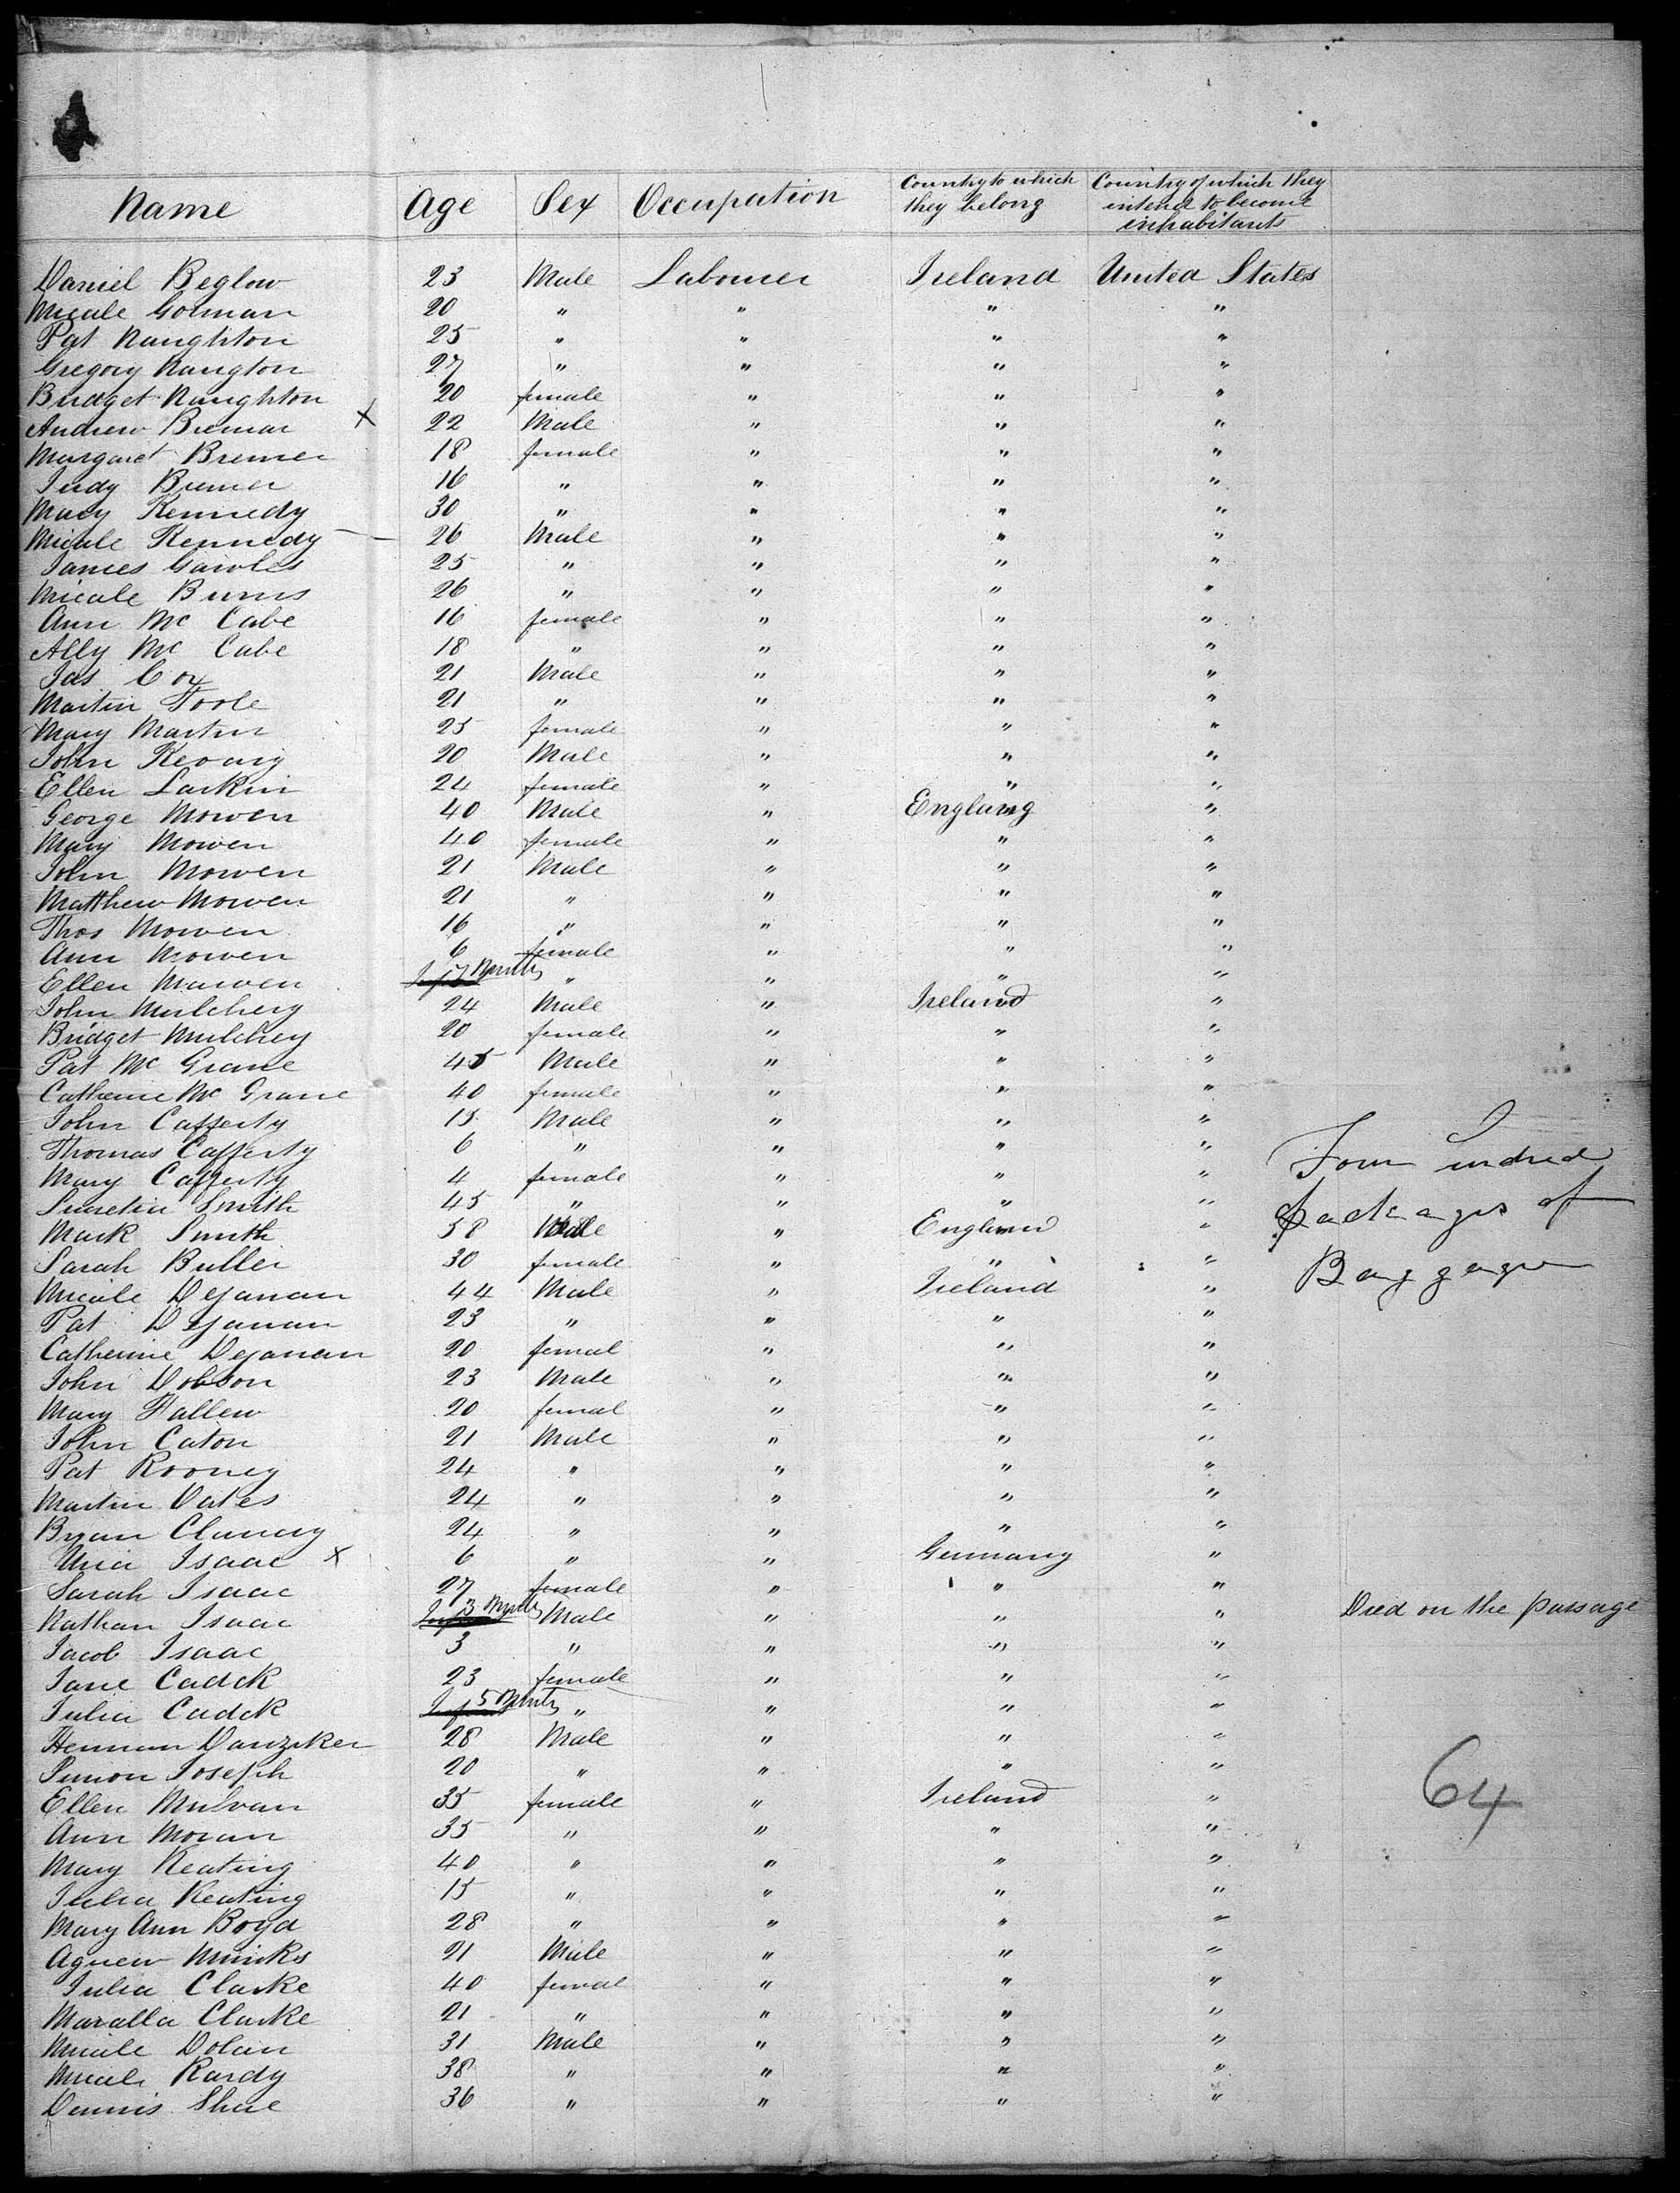 Name Age Sex Occupation Country to which they belong Country of which they intend to become inhabitants
Daniel Beglow 23 Male Labourer Ireland United States
Micale Gorman 20 " " " "
Pat Naughton 25 " " " "
Gregory Naugton 27 " " " "
Bridget Naughton 20 female " " "
Andrew Bremar X 22 Male " " "
Margaret Bremer 18 female " " "
Judy Bremer 16 " " " "
Mary Kennedy 30 " " " "
Micale Kennedy 26 Male " " "
James 25 " " " "
Micale Burns 26 " " " "
Ann Mc Cabe 16 female " " "
Ally Mc Cabe 18 " " " "
Jas Cox 21 Male " " "
Martin Toole 21 " " " "
Mary Martin 25 female " " "
John 20 Male " " "
Ellen Larkin 24 female " " "
George Mowen 40 Male " England "
Mary Mowen 40 female " " "
John Mowen 21 Male " " "
Matthew Mowen 21 " " " "
Thos Mowen 16 " " " "
Ann Mowen 6 female " " "
Ellen Mowen 7 Months " " " "
John Mulchey 24 Male " Ireland "
Bridget Mulchey 20 female " " "
Pat Mc Grane 45 Male " " "
Catherine Mc Grane 40 female " " "
John Cafferty 15 Male " " "
Thomas Cafferty 6 " " " "
Mary Cafferty 4 female " " "
Smith 45 " " " "
Mark Smith 58 Male " England "
Sarah Butler 30 female " " "
Micale Deganan 44 Male " Ireland "
Pat Deganan 23 " " " "
Catherine Deganan 20 femal " " "
John Dobson 23 Male " " "
Mary Fallew 20 femal " " "
John Caton 21 Male " " "
Pat Rooney 24 " " " "
Martin Oates 24 " " " "
Bryan Clancey 24 " " " "
Isaac X 6 " " Germany "
Sarah Isaac 27 female " " "
Nathan Isaac 3 Mnths Male " " " Died on the passage
Jacob Isaac 3 " " " "
Jane Cadck 23 female " " "
Julia Cadck 5 Mnts " " " "
Herman Danziker 28 Male " " "
Simon Joseph 20 " " " "
Ellen Mulvan 35 female " Ireland "
Ann Moran 35 " " " "
Mary Keating 40 " " " "
Julia Keating 15 " " " "
Mary Ann Boyd 28 " " " "
Agnew Minks 21 Male " " "
Julia Clarke 40 femal " " "
Maralla Clarke 21 " " " "
Micale Dolan 31 Male " " "
Micale Rardy 38 " " " "
Dennis Shue 36 " " " "
Four undred
packages of
Baggage
64